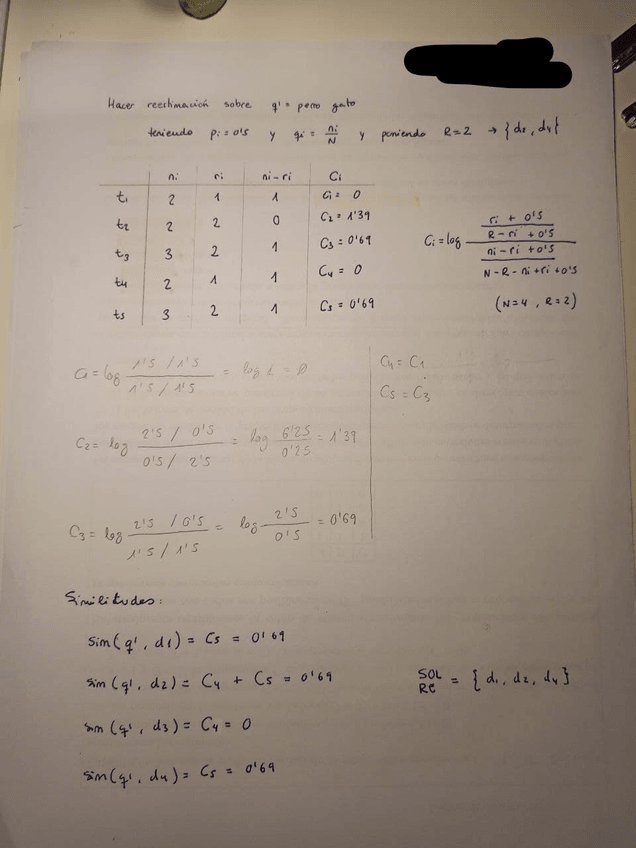 Hacer reestimación sobre q' = perro gato
teniendo pi = 0'5 y qi = ni/N y poniendo R=2 → {d2, d4}
ni ri ni-ri Ci
t1 2 1 1 C1 = 0
t2 2 2 0 C2 = 1'39
t3 3 2 1 C3 = 0'69
t4 2 1 1 C4 = 0
t5 3 2 1 C5 = 0'69
Ci = log ((ri + 0'5) / (R-ri + 0'5)) / ((ni-ri + 0'5) / (N-R-ni+ri+0'5))
(N=4, R=2)
C1 = log (1'5 / 1'5) / (1'5 / 1'5) = log 1 = 0
C4 = C1
C5 = C3
C2 = log (2'5 / 0'5) / (0'5 / 2'5) = log 6'25/0'25 = 1'39
C3 = log (2'5 / 0'5) / (1'5 / 1'5) = log 2'5/0'5 = 0'69
Similitudes:
Sim(q', d1) = C5 = 0'69
Sim(q', d2) = C4 + C5 = 0'69
Sim(q', d3) = C4 = 0
Sim(q', d4) = C5 = 0'69
SOL RE = {d1, d2, d4}